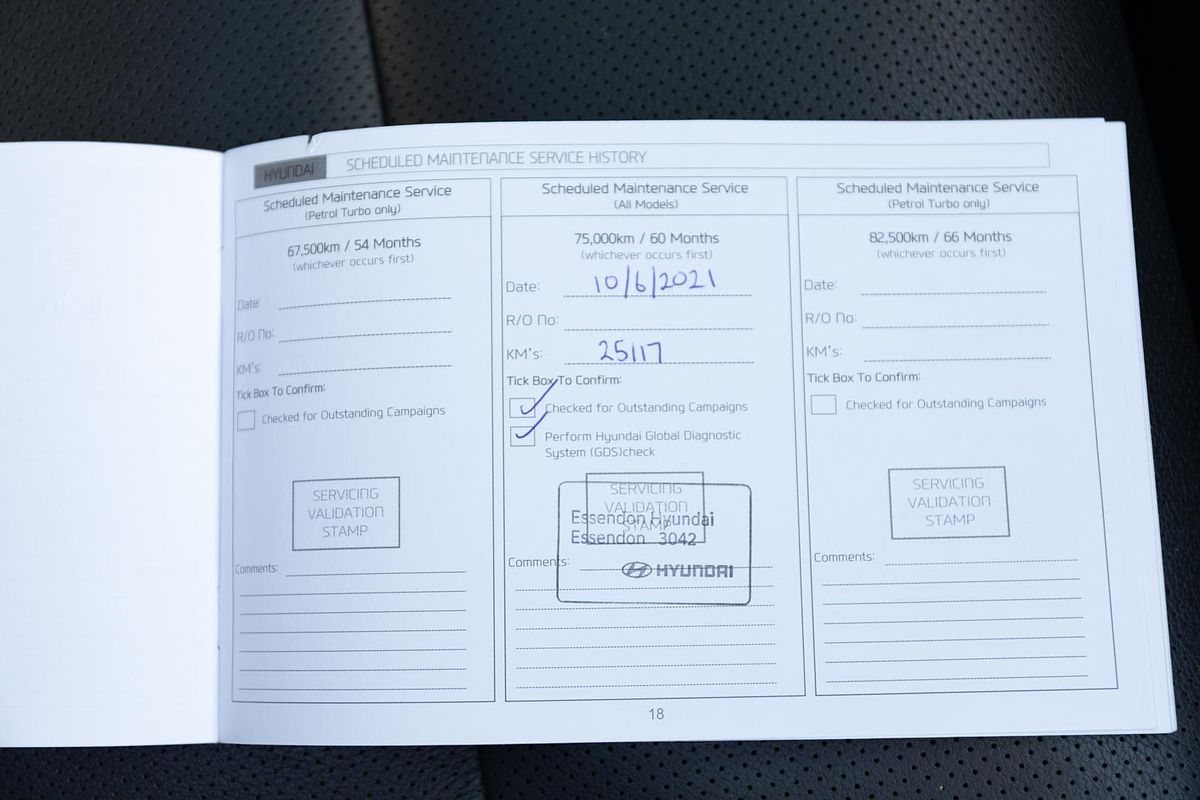 HYUNDAI SCHEDULED MAINTENANCE SERVICE HISTORY
Scheduled Maintenance Service
(Petrol Turbo only)
67,500km / 54 Months
(whichever occurs first)
Date:
R/O No:
KM's:
Tick Box To Confirm:
Checked for Outstanding Campaigns
SERVICING
VALIDATION
STAMP
Comments:
Scheduled Maintenance Service
(All Models)
75,000km / 60 Months
(whichever occurs first)
Date: 10/6/2021
R/O No:
KM's: 25117
Tick Box To Confirm:
Checked for Outstanding Campaigns
Perform Hyundai Global Diagnostic
System (GDS)check
SERVICING
VALIDATION
STAMP
Essendon Hyundai
Essendon 3042
HYUNDAI
Comments:
Scheduled Maintenance Service
(Petrol Turbo only)
82,500km / 66 Months
(whichever occurs first)
Date:
R/O No:
KM's:
Tick Box To Confirm:
Checked for Outstanding Campaigns
SERVICING
VALIDATION
STAMP
Comments:
18